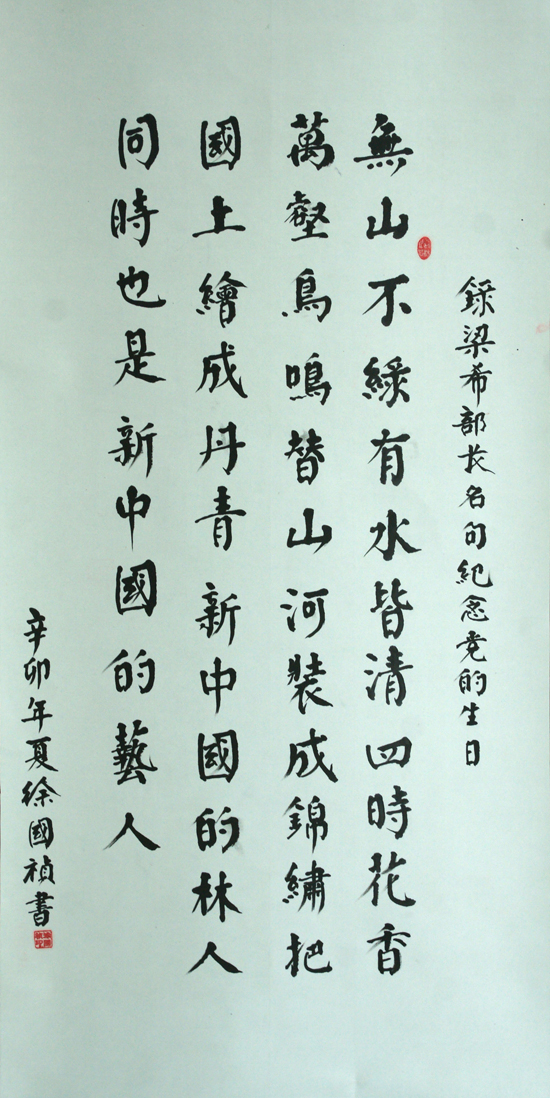 錄梁希部长名句紀念党的生日
無山不綠有水皆清四時花香
萬壑鳥鳴替山河裝成錦繡把
國土繪成丹青新中國的林人
同時也是新中國的藝人
辛卯年夏徐國禎書